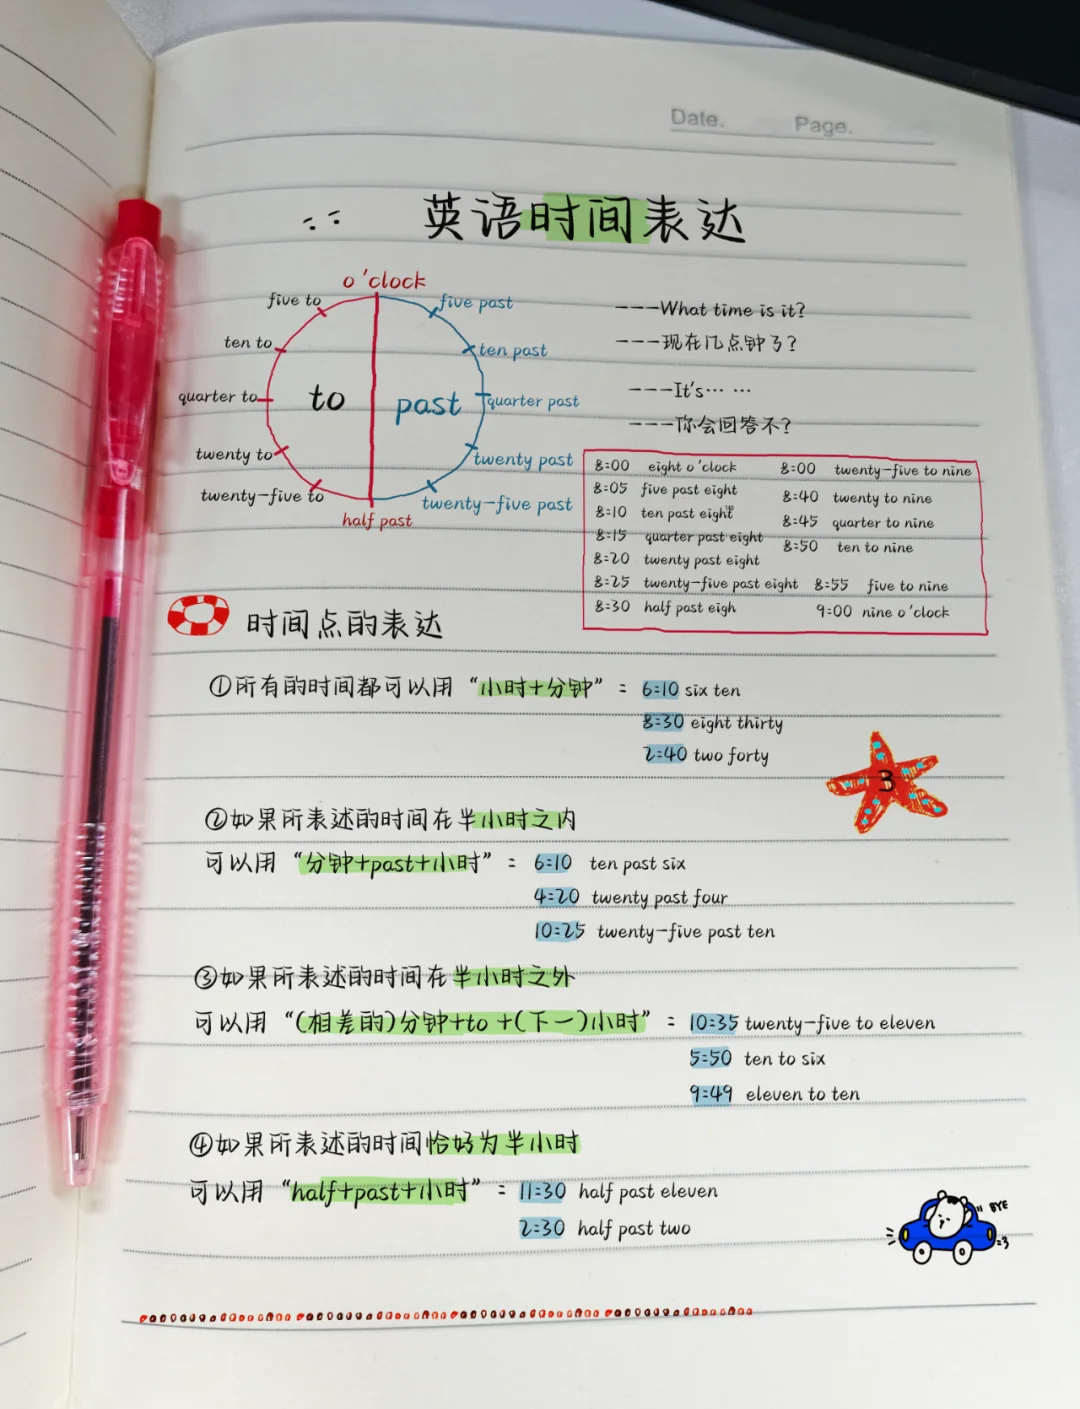 Date. Page.
英语时间表达
o'clock
five to
five past
ten to
ten past
quarter to
quarter past
to
past
twenty to
twenty past
twenty-five to
twenty-five past
half past
---What time is it?
---现在几点钟了?
---It's……
---你会回答不?
8:00 eight o'clock 8:00 twenty-five to nine
8:05 five past eight 8:40 twenty to nine
8:10 ten past eight 8:45 quarter to nine
8:15 quarter past eight 8:50 ten to nine
8:20 twenty past eight
8:25 twenty-five past eight 8:55 five to nine
8:30 half past eigh 9:00 nine o'clock
时间点的表达
①所有的时间都可以用“小时+分钟”: 6:10 six ten
8:30 eight thirty
2:40 two forty
3
②如果所表述的时间在半小时之内
可以用“分钟+past+小时”: 6:10 ten past six
4:20 twenty past four
10:25 twenty-five past ten
③如果所表述的时间在半小时之外
可以用“(相差的)分钟+to+(下一)小时”: 10:35 twenty-five to eleven
5:50 ten to six
9:49 eleven to ten
④如果所表述的时间恰好为半小时
可以用“half+past+小时”: 11:30 half past eleven
2:30 half past two
BYE